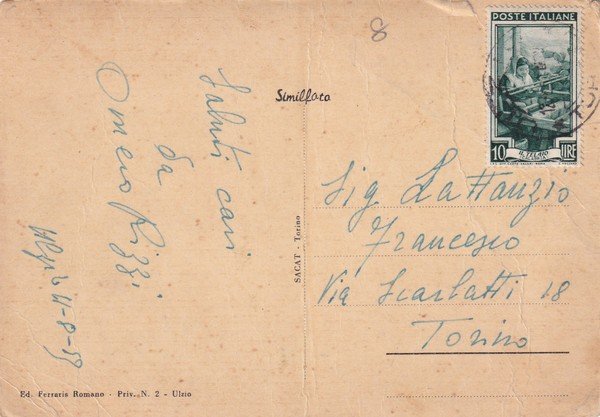 8
POSTE ITALIANE
10 IL TELAIO LIRE
Similfoto
Saluti cari
da
Omero Rizzi
4-8-53
SACAT - Torino
Sig. Lattanzio
Francesco
Via Scarlatti 18
Torino
Ed. Ferraris Romano - Priv. N. 2 - Ulzio